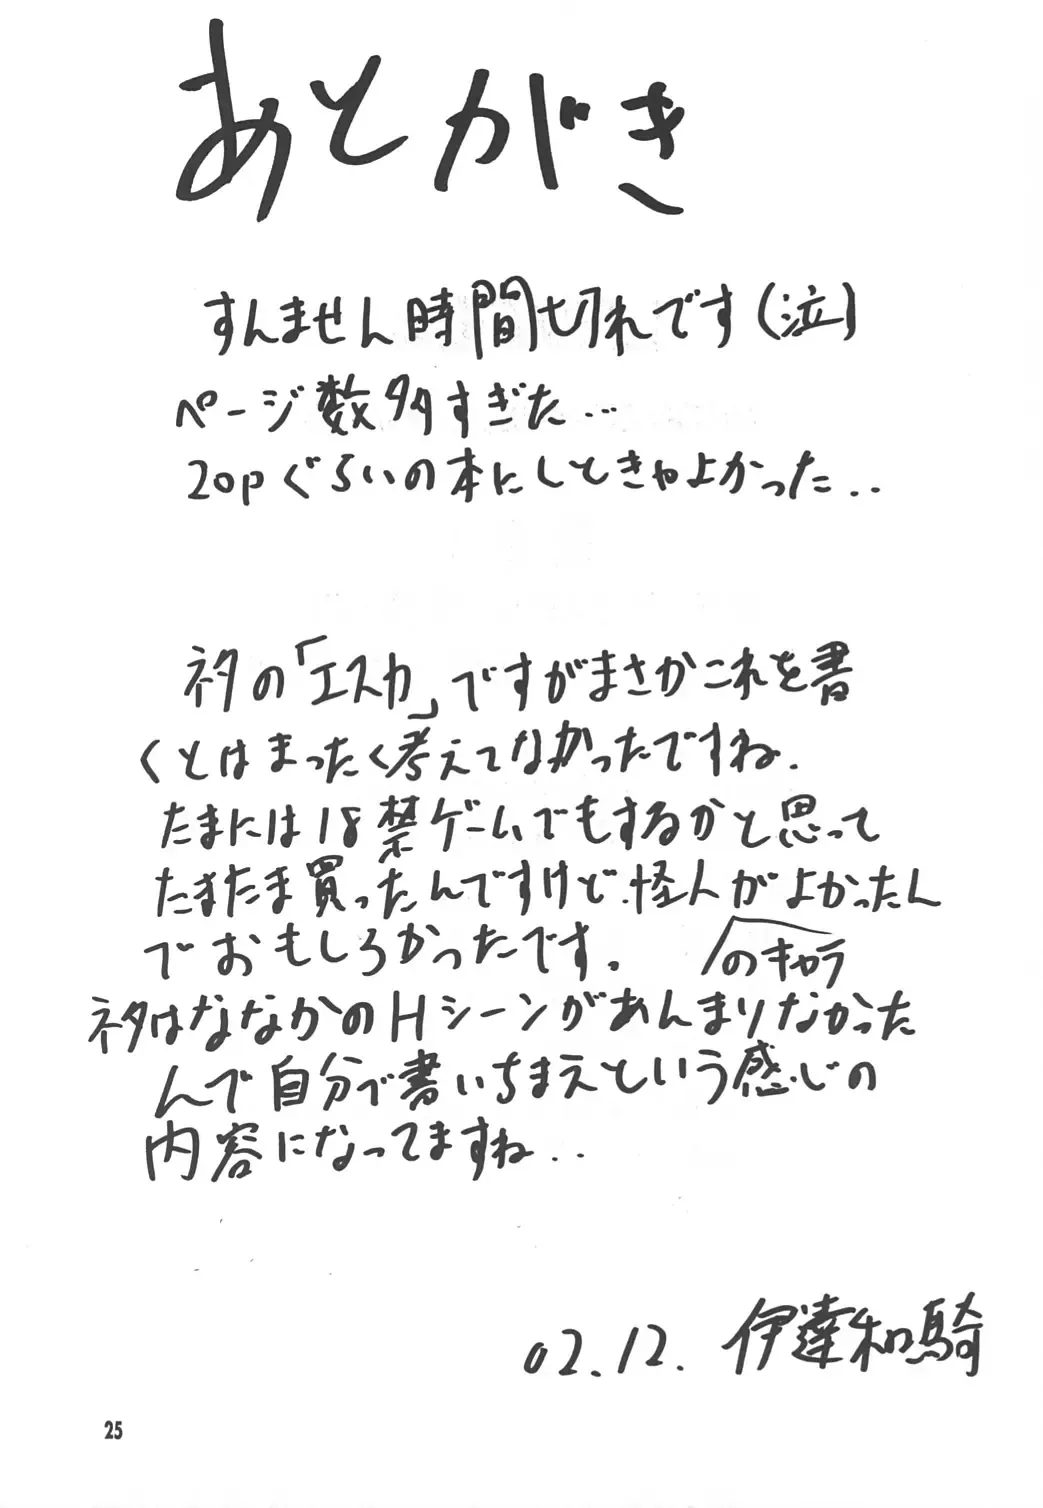 あとがき
すんません時間切れです(泣)
ページ数多すぎた...
20pぐらいの本にしときゃよかった..
ネタの「エスカ」ですがまさかこれを書
くとはまったく考えてなかったですね.
たまには18禁ゲームでもするかと思って
たまたま買ったんですけど.怪人がよかったん
でおもしろかったです。 のキャラ
ネタはななかのHシーンがあんまりなかった
んで自分で書いちまえという感じの
内容になってますね..
02.12. 伊達和騎
25